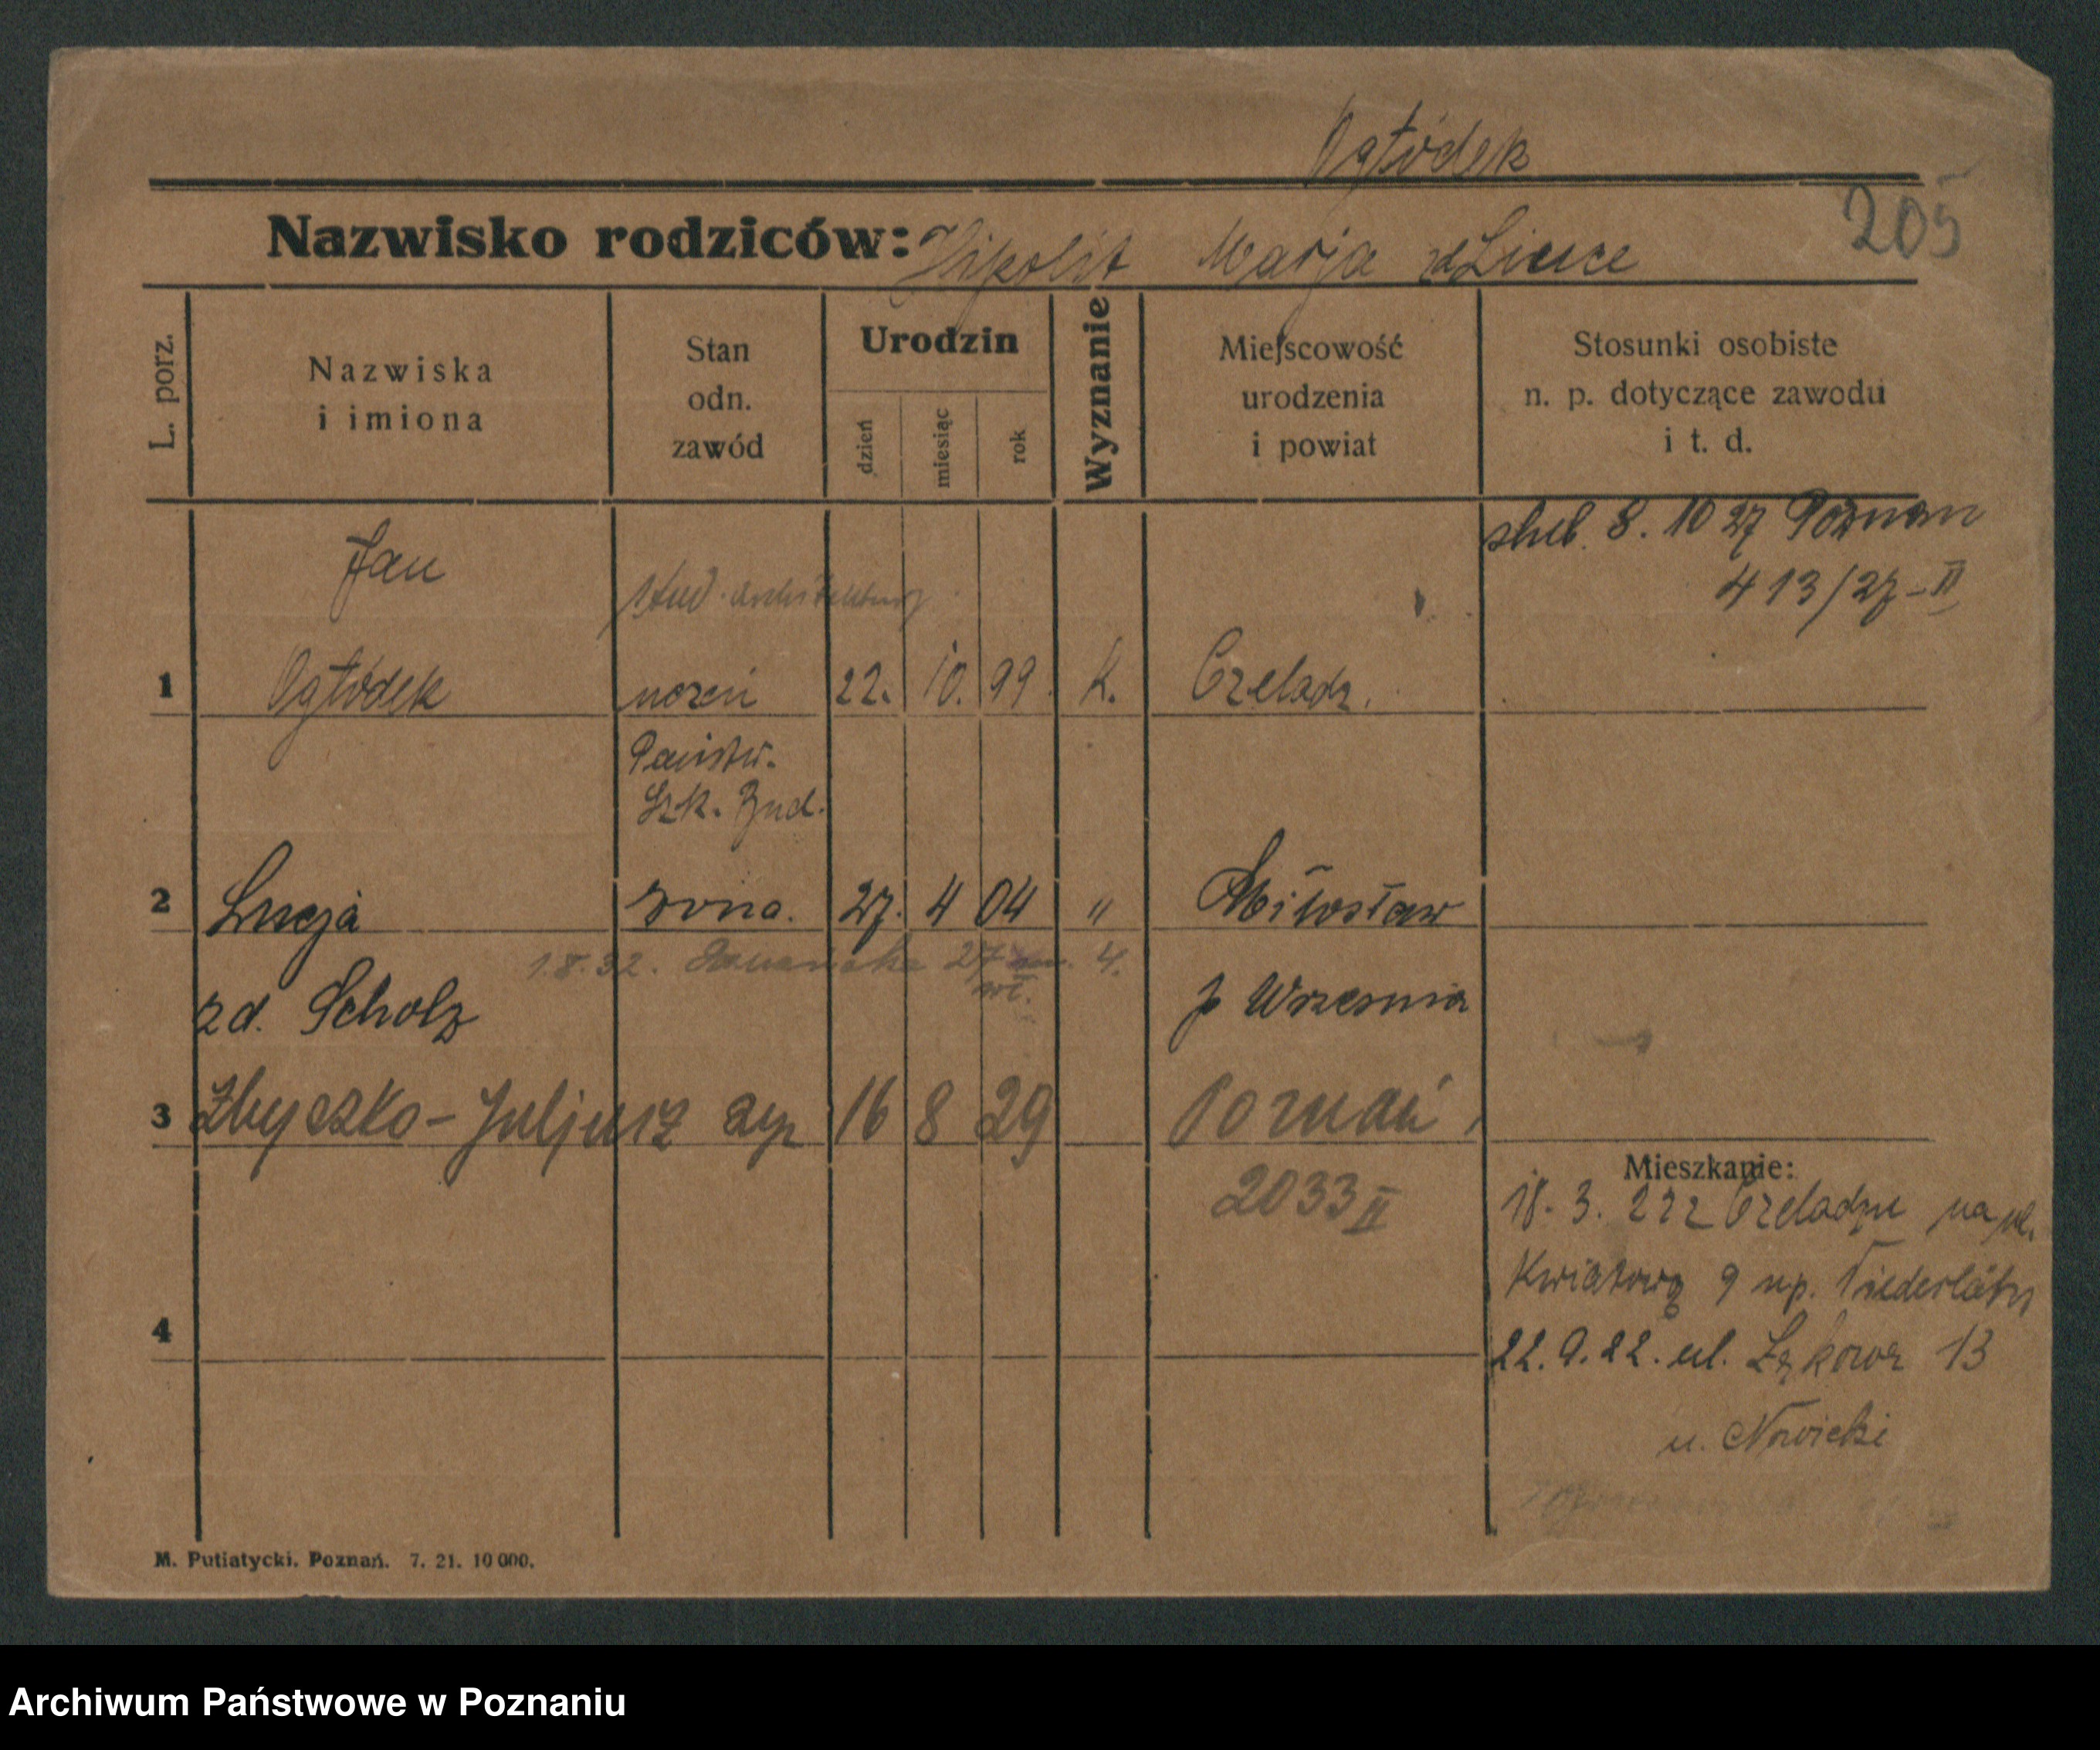 Ogłódek
205
Nazwisko rodziców: Hipolit Marja zd
L. porz.
Nazwiska
i imiona
Stan
odn.
zawód
Urodzin
dzień
miesiąc
rok
Wyznanie
Miejscowość
urodzenia
i powiat
Stosunki osobiste
n. p. dotyczące zawodu
i t. d.
ślub. 8. 10 27 Poznan
413/27-II
Jan
stud. architektury
1 Ogłódek uczeń 22. 10. 99. k. Czeladz.
Państw.
Szk. Bud.
2 Lucja żona. 27. 4 04 " Miłosław
1.8.32. 27 4.
zd. Scholz p Wrzesnia
3 Zbyszko-Juljusz syn 16 8 29 Poznań,
2033 II
Mieszkanie:
18. 3. 22 z Czeladzu na ul.
Kwiatową 9 up.
4
22. 9. 22. ul. Łąkowa 13
u. Nowicki
M. Putiatycki. Poznań. 7. 21. 10 000.
Archiwum Państwowe w Poznaniu